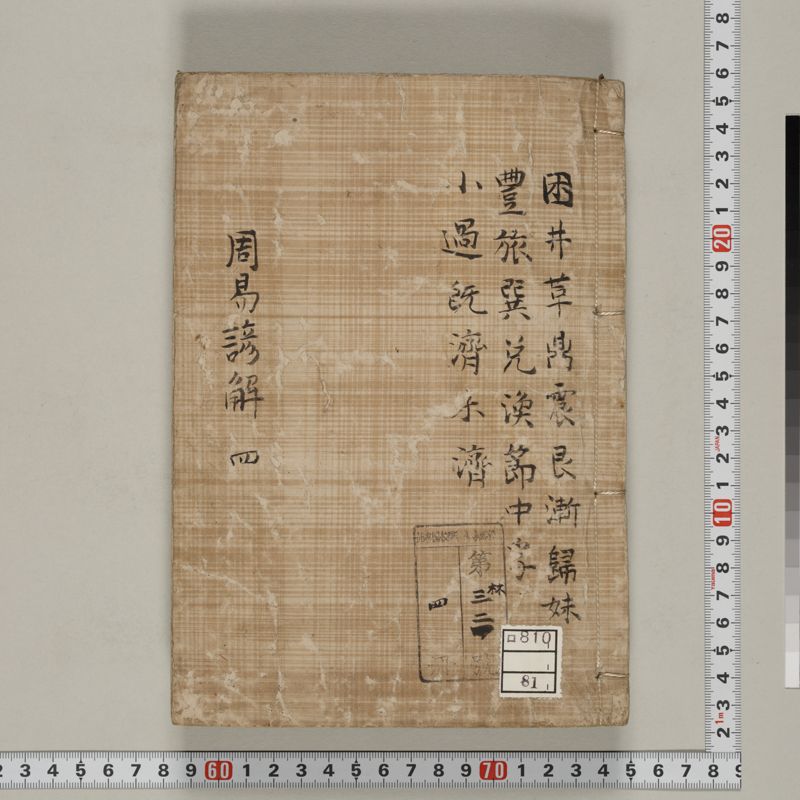 困井革鼎震艮漸歸妹
豐旅巽兌渙節中孚
小過既濟未濟
周易諺解 四
第
三二
號
四
林
口810
81